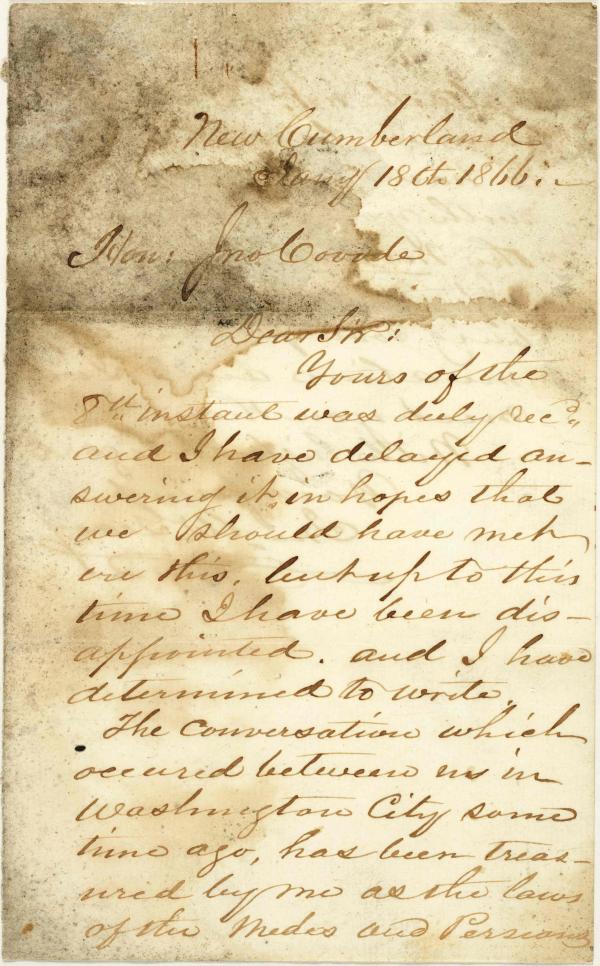 New Cumberland
Jany 18th 1866.
Hon: Jno Covode
Dear Sir:
Yours of the
8th instant was duly recd
and I have delayed an-
swering it in hopes that
we should have met
ere this, but up to this
time I have been dis-
appointed. and I have
determined to write.
The conversation which
occured between us in
Washington City some
time ago, has been treas-
ured by me as the laws
of the Medes and Persians